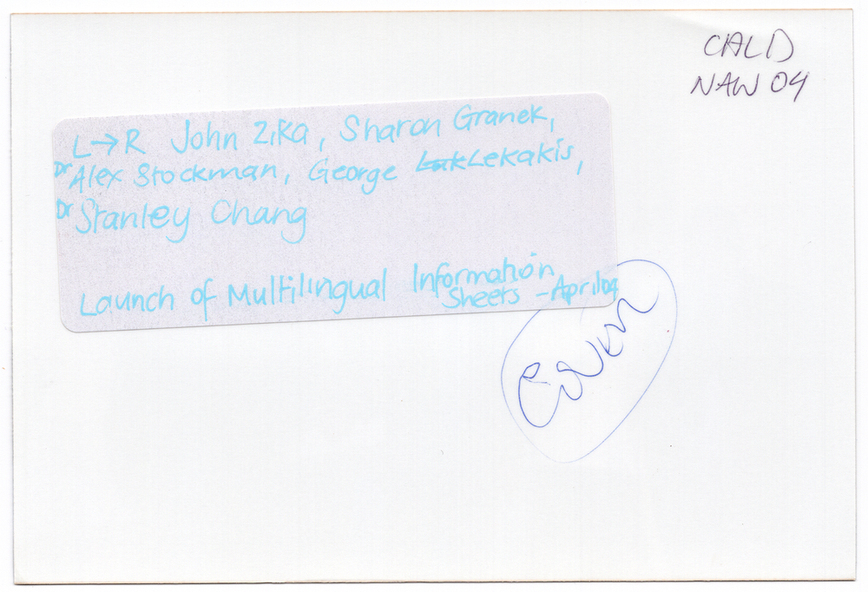 CALD
NAW 04
L→R John Zika, Sharon Granek,
Dr Alex Stockman, George Lekakis,
Dr Stanley Chang
Launch of Multilingual Information
Sheets - April 04